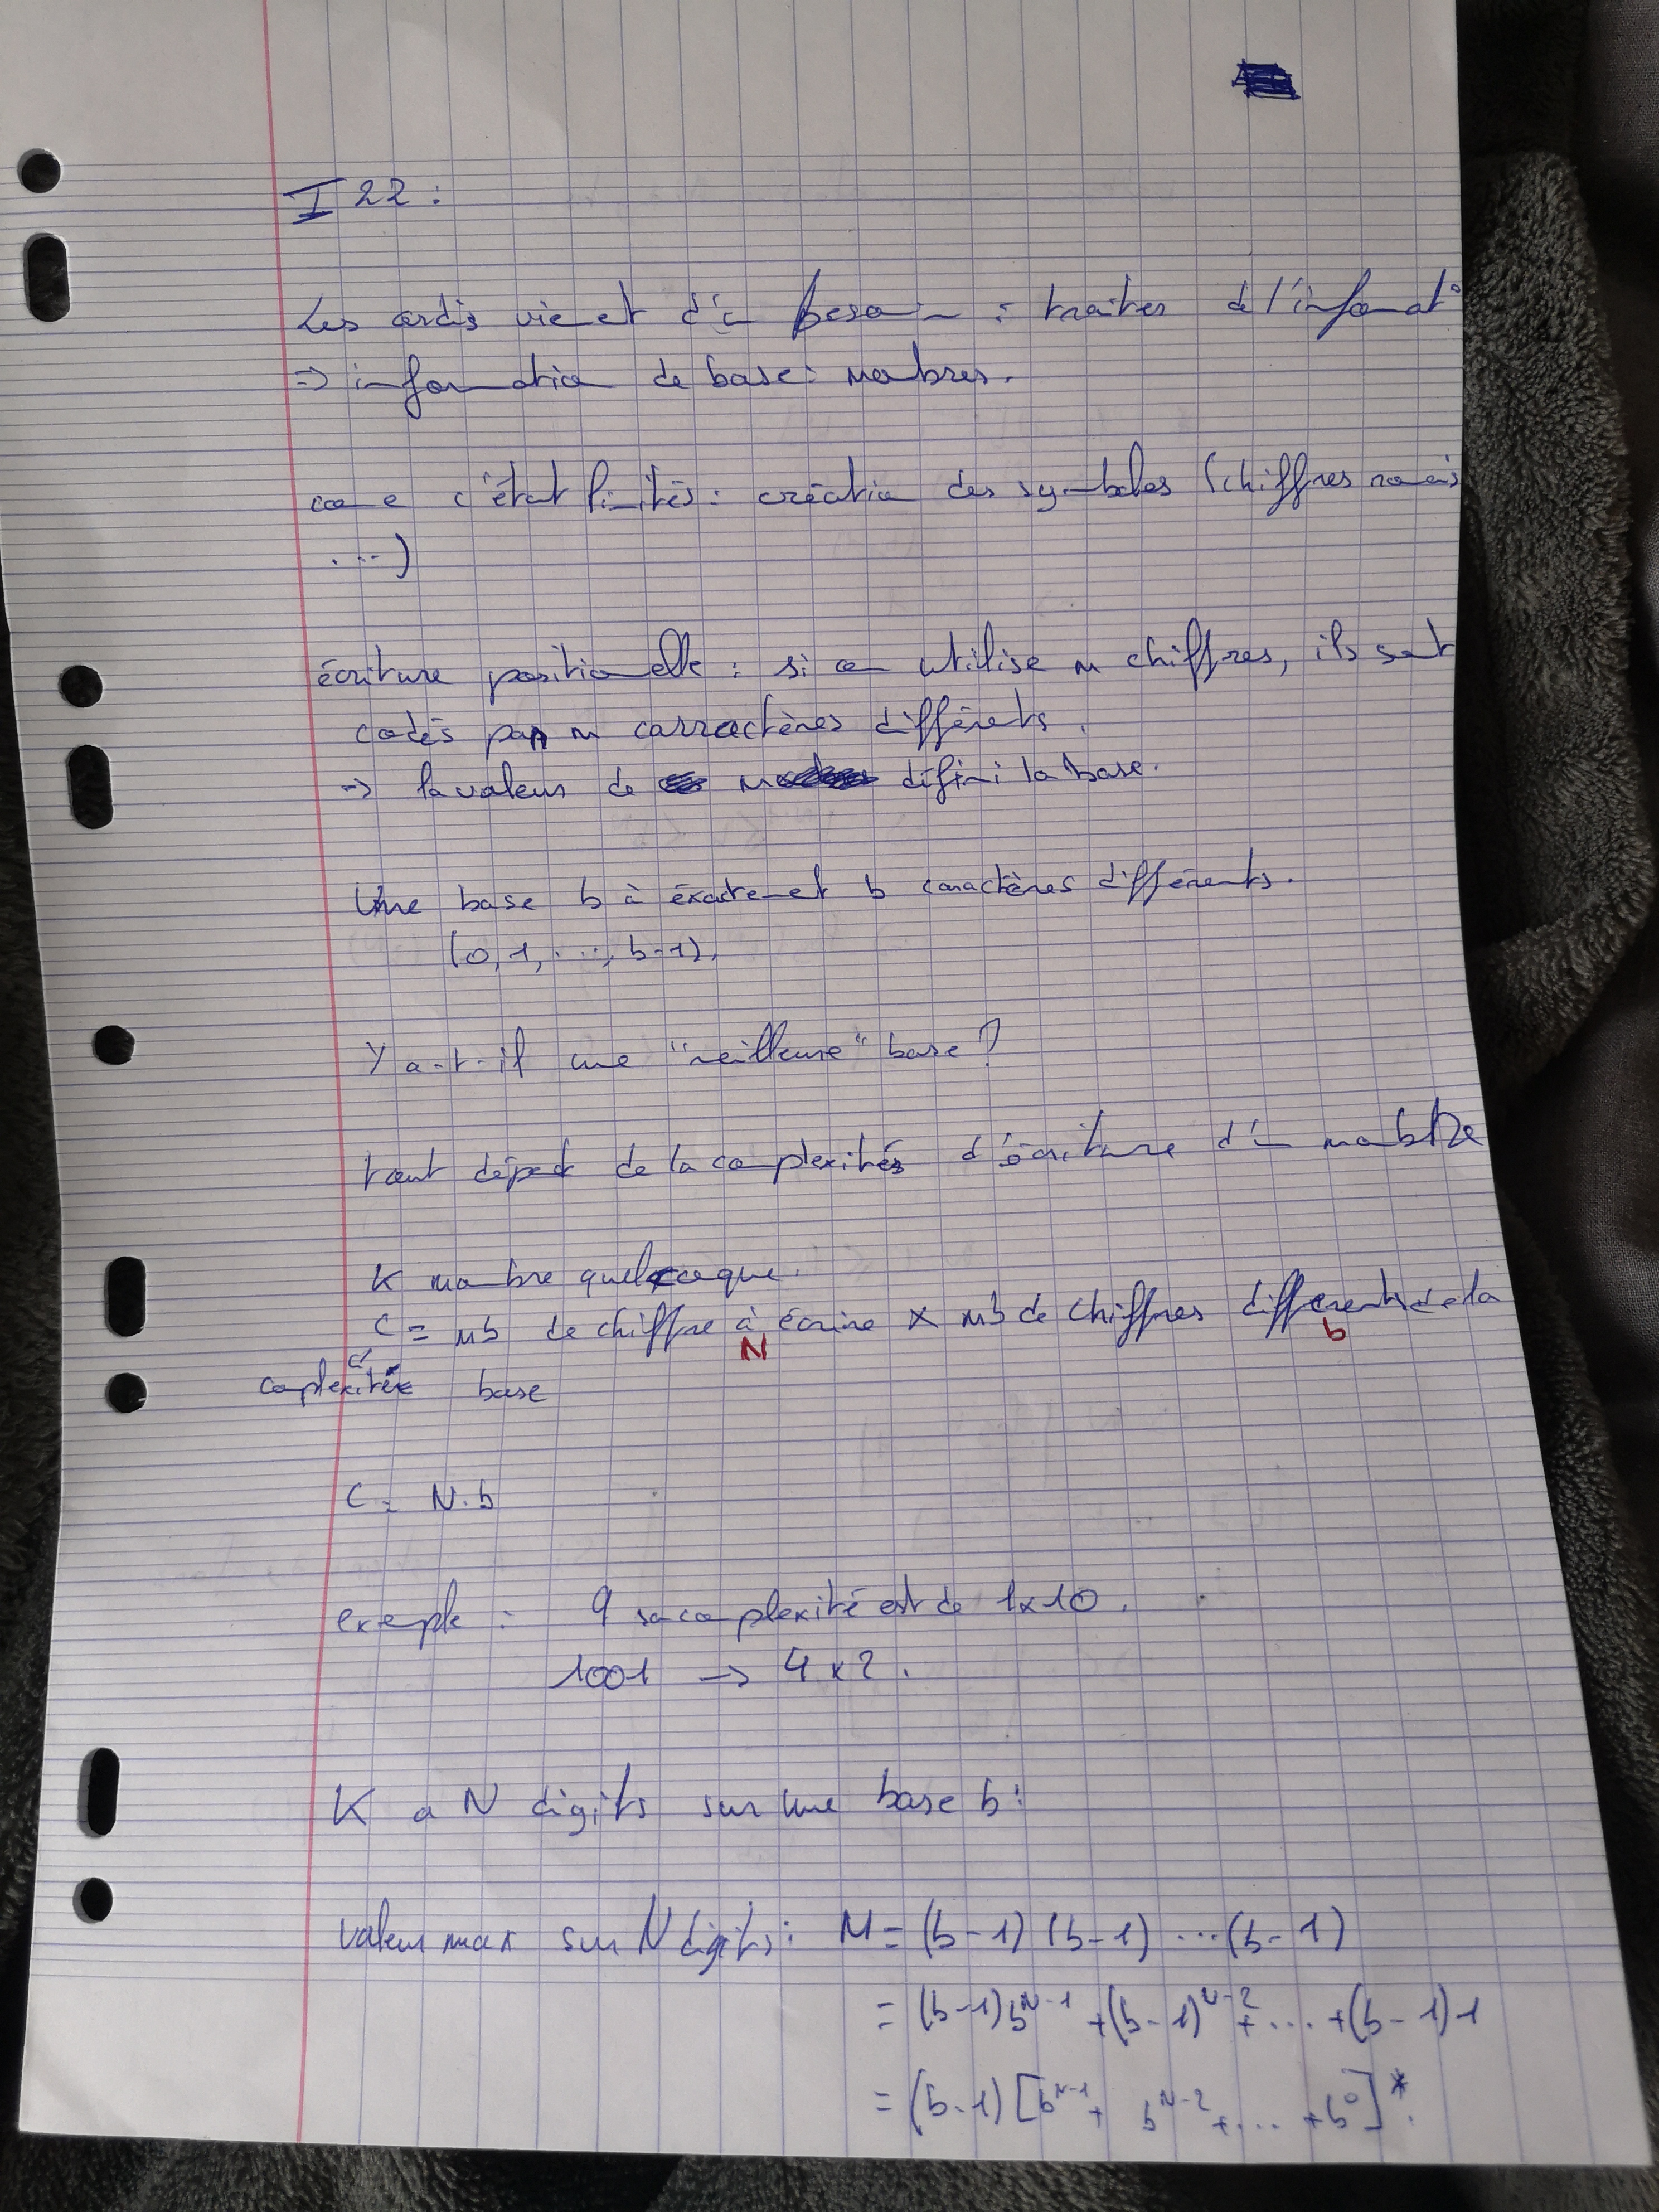 I 22 :
Les ordis viennent d'un besoin : traiter de l'informat°
=> information de base : nombres.
comme c'était limités : création des symboles (chiffres romains
...)
écriture positionnelle : si on utilise n chiffres, ils sont
codés par n carractères différents.
-> la valeur de n défini la base.
Une base b à éxactement b caractères différents.
(0, 1, ..., b-1).
Y a-t-il une "meilleure" base ?
tout dépend de la complexités d'écriture d'un nombre
K nombre quelconque.
C = nb de chiffre à écrire × nb de chiffres différents de la
N b
complexitée base
C = N.b
exemple : 9 sa complexité est de 1x10.
1001 -> 4 x 2.
K a N digits sur une base b :
valeur max sur N digits : M = (b-1) (b-1) ... (b-1)
= (b-1)b^{N-1} + (b-1)^{N-2} + ... + (b-1)1
= (b-1) [b^{N-1} + b^{N-2} + ... + b^0]*.